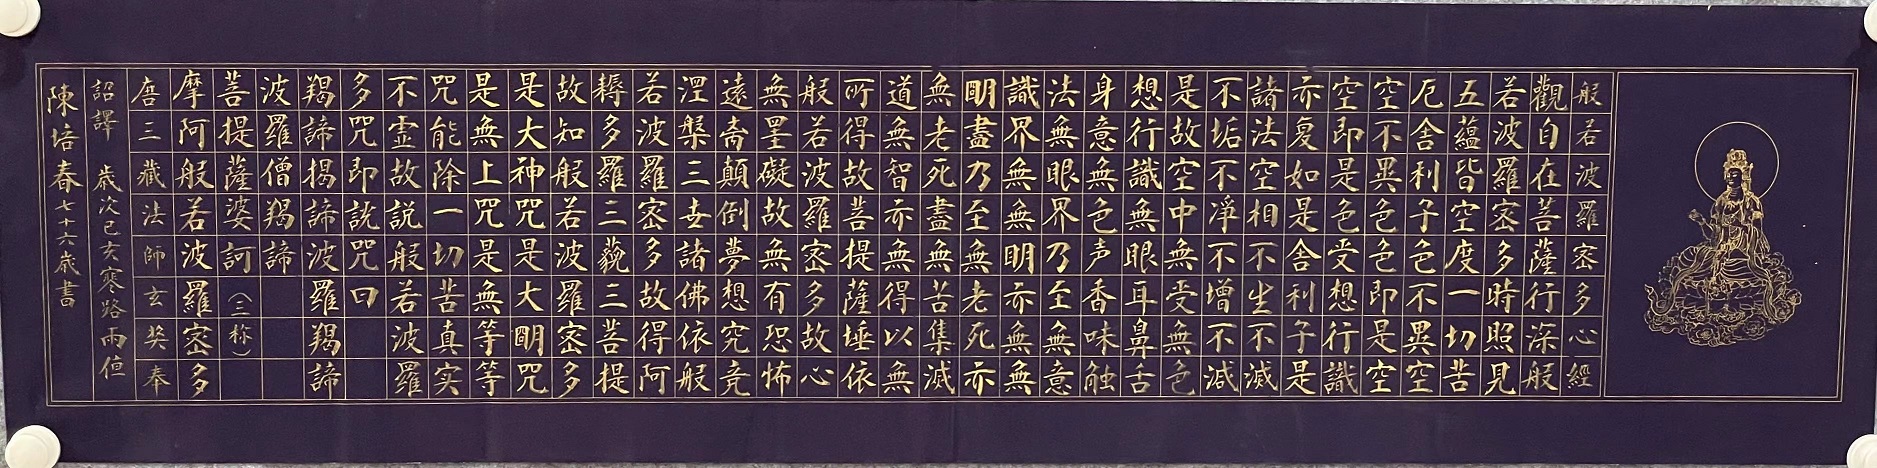 般若波羅密多心經
觀自在菩薩行深般
若波羅密多時照見
五蘊皆空度一切苦
厄舍利子色不異空
空不異色色即是空
空即是色受想行識
亦复如是舍利子是
諸法空相不生不滅
不垢不淨不增不减
是故空中無受無色
想行識無眼耳鼻舌
身意無色声香味触
法無眼界乃至無意
識界無無明亦無無
明盡乃至無老死亦
無老死盡無苦集减
道無智亦無得以無
所得故菩提薩埵依
般若波羅密多故心
無罣礙故無有恐怖
遠离顛倒夢想究竟
涅槃三世諸佛依般
若波羅密多故得阿
耨多羅三藐三菩提
故知般若波羅密多
是大神咒是大明咒
是無上咒是無等等
咒能除一切苦真实
不虚故説般若波羅
多咒即説咒曰
羯諦揭諦波羅羯諦
波羅僧羯諦
菩提薩婆訶（三称）
摩阿般若波羅密多
唐三藏法師玄奘奉
詔譯 歲次己亥寒路雨値
陳培春七十六歲書